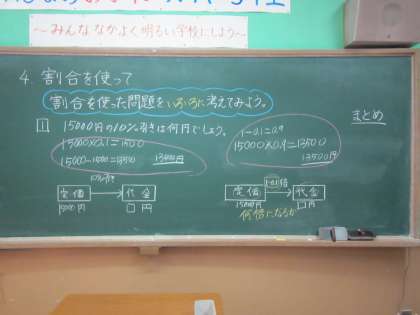 ～みんななかよく明るい学校にしよう～
4. 割合を使って
割合を使った問題をいろいろに考えてみよう。
1 15000円の10%引きは何円でしょう。
15000×0.1=1500
15000-1500=13500 13500円
定価 代金
15000円 □円
1-0.1=0.9
15000×0.9=13500
13500円
定価 代金
15000円 □円
何倍になるか
まとめ